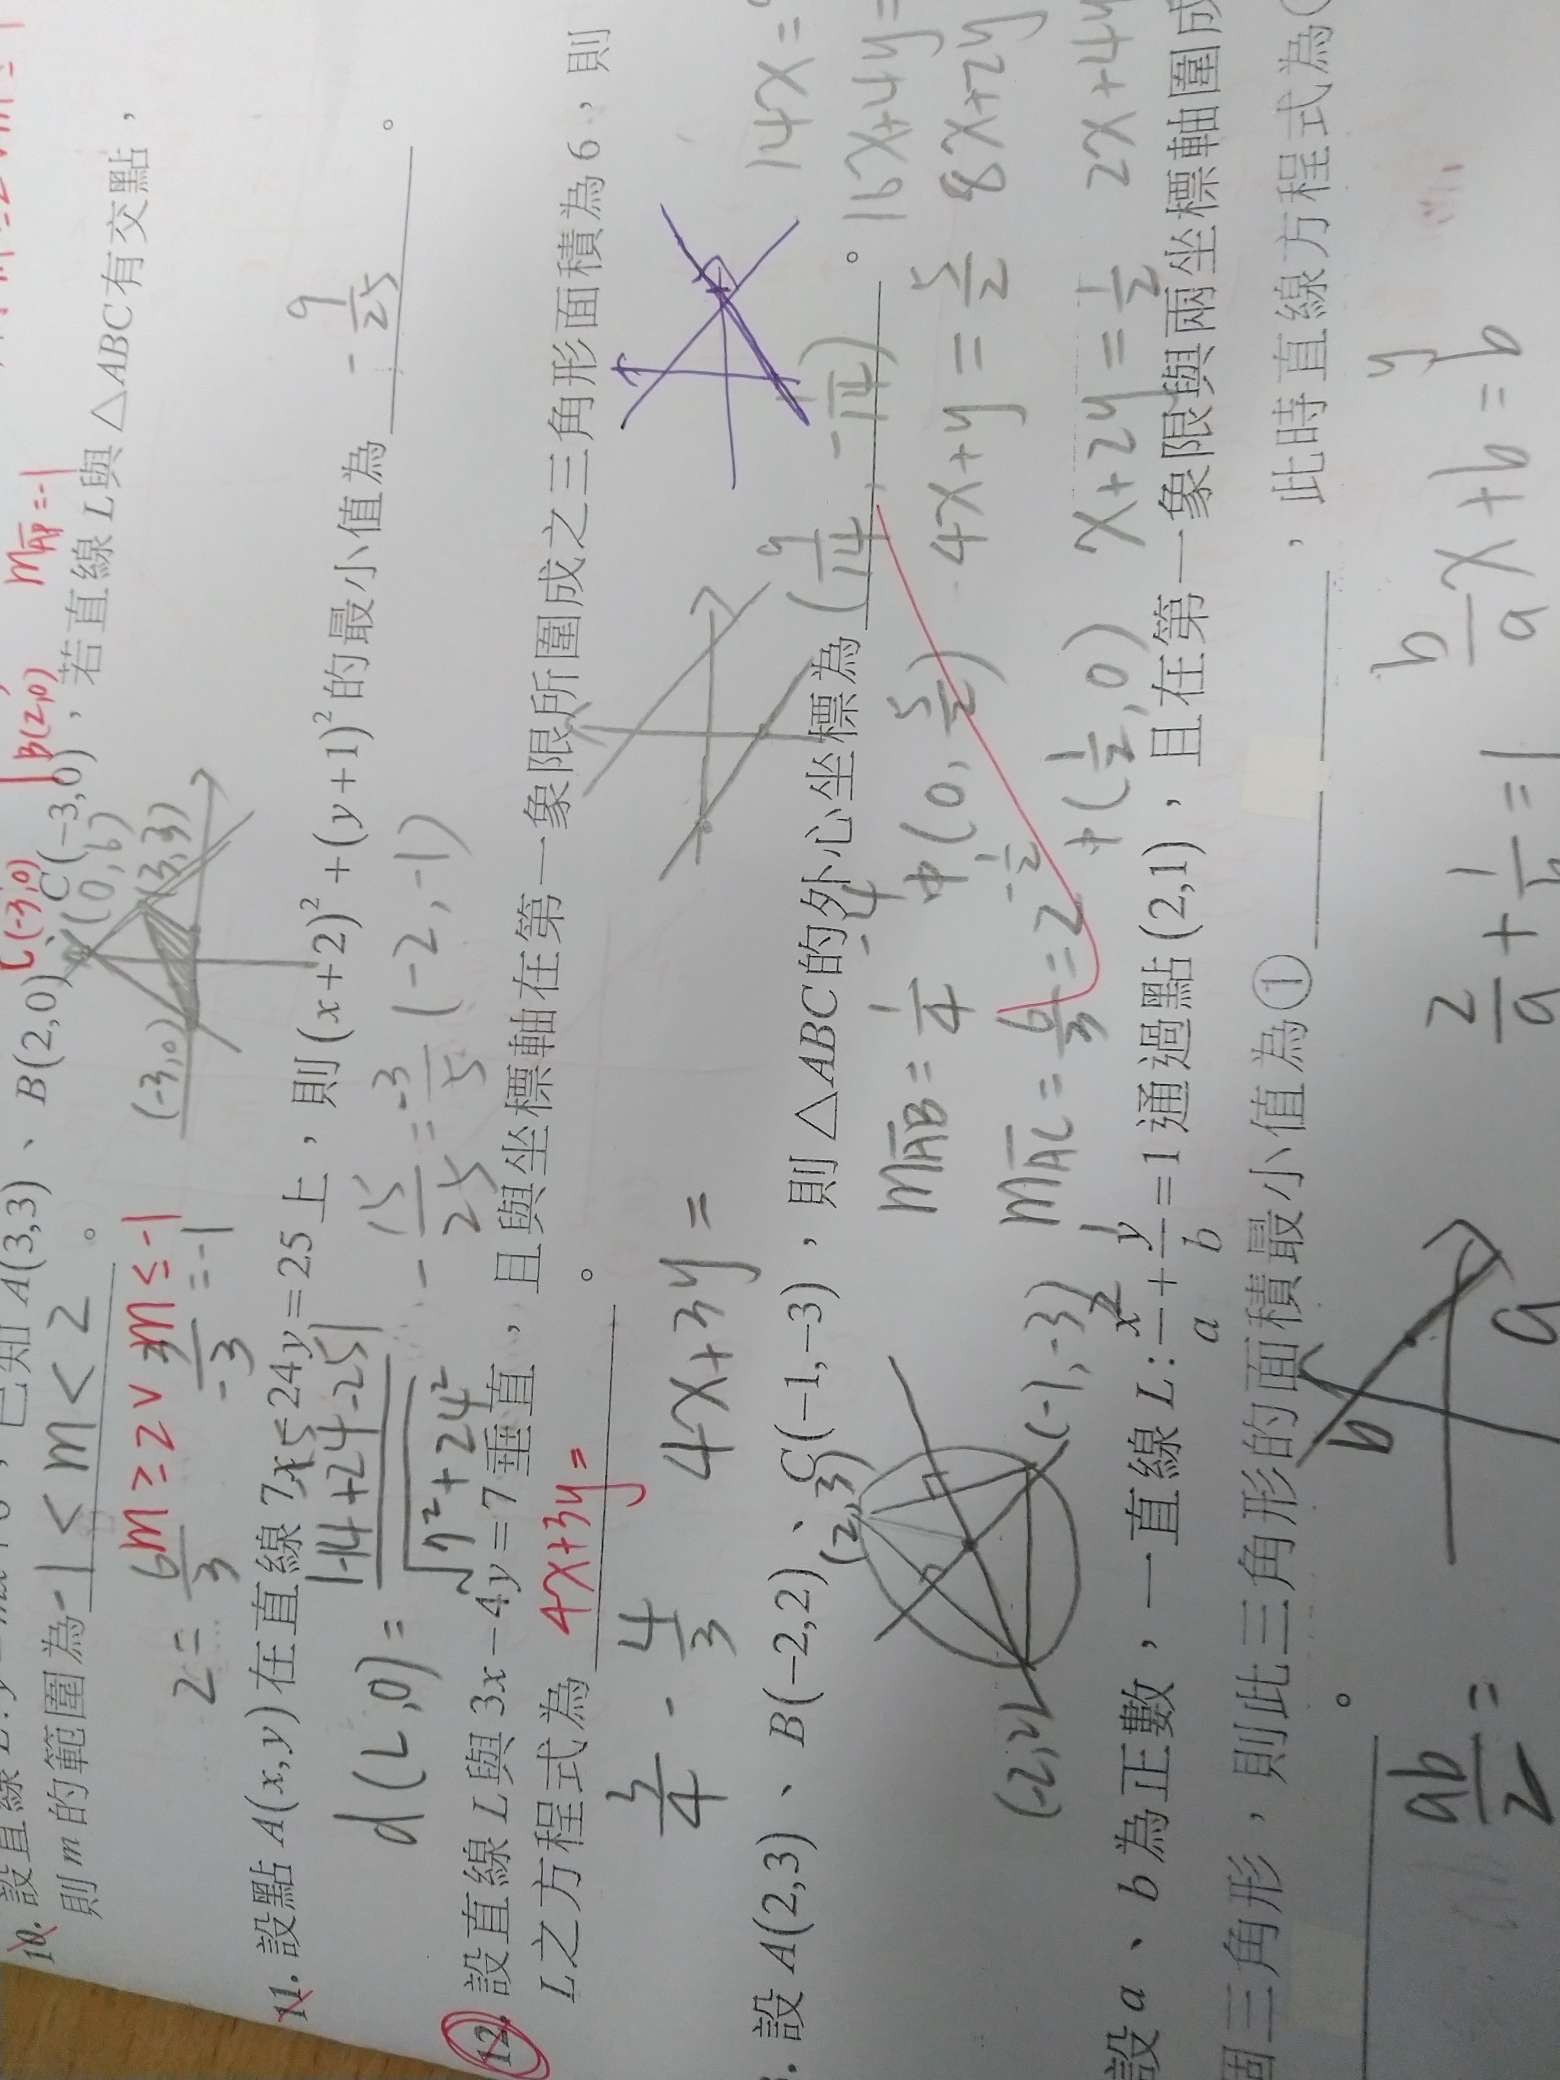 10. 設直線
已知 A(3,3)、B(2,0)、C(−3,0),若直線 L 與 △ABC 有交點,
C(-3,0) B(2,0) mAP=-1
則 m 的範圍為 -1<m<2 。
(0,6)
(3,3)
(-3,0)
m≥2 ∨ m≤-1
2= 6/3
-3 =-1
11. 設點 A(x,y) 在直線 7x−24y=25 上,則 (x+2)²+(y+1)² 的最小值為 - 9/25 。
d(L,0)= |-14+24-25| / √7²+24²
- 15/25 = -3/5
(-2,-1)
12. 設直線 L 與 3x−4y=7 垂直,且與坐標軸在第一象限所圍成之三角形面積為 6,則
L 之方程式為 4x+3y= 。
3/4 - 4/3
4x+3y=
設 A(2,3)、B(−2,2)、C(−1,−3),則 △ABC 的外心坐標為 (9/14, -1/14) 。
14x=
16x+4y=
(2,3)
(-2,2)
(-1,-3)
mAB= 1/4 -4 中(0, 5/2) 4x+y= 5/2 8x+2y
mAC= 6/3 =2 -1/2 中(1/2, 0) x+2y= 1/2 2x+4y
設 a、b 為正數,一直線 L: x/a + y/b =1 通過點 (2,1),且在第一象限與兩坐標軸圍成
圍三角形,則此三角形的面積最小值為① ,此時直線方程式為
。
ab/2 =
b
a
2/a + 1/b =1
b/a x+b=